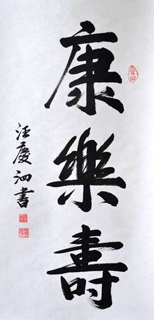 康樂壽
汪慶泗書